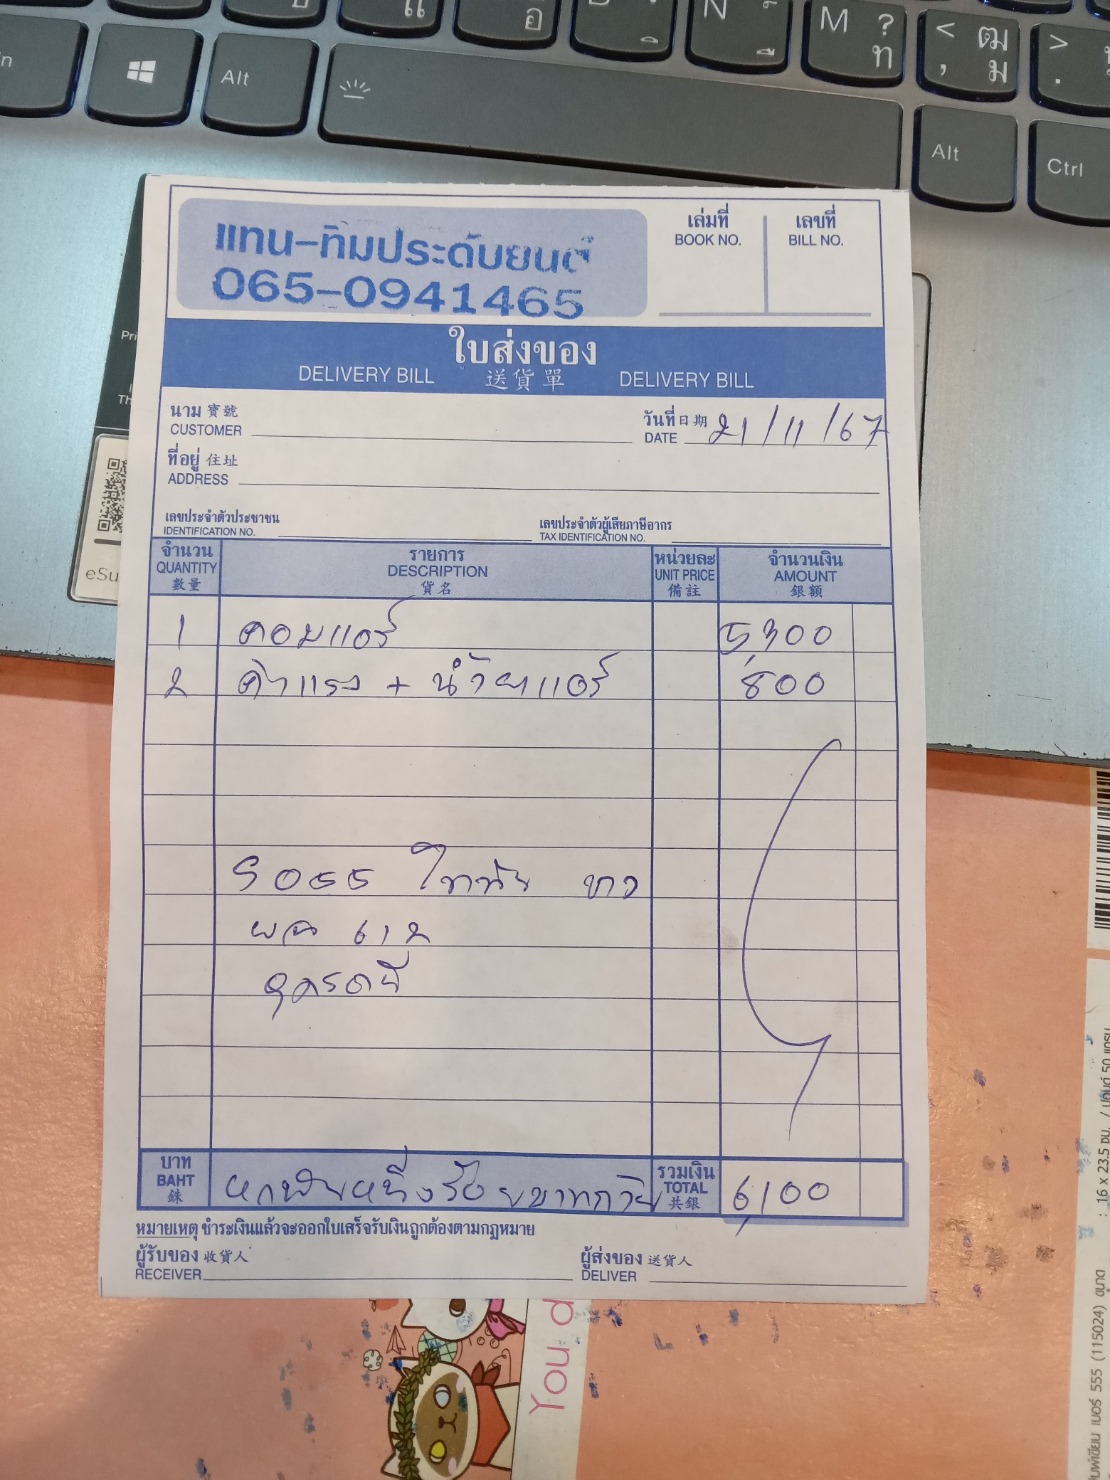 Alt
N
M ? ท
< ฒ , ม
> .
Alt
Ctrl
แทน-ทิมประดับยนต์
065-0941465
เล่มที่ เลขที่
BOOK NO. BILL NO.
ใบส่งของ
DELIVERY BILL 送貨單 DELIVERY BILL
นาม 寶號
CUSTOMER
วันที่ 日期
DATE 21/11/67
ที่อยู่ 住址
ADDRESS
เลขประจำตัวประชาชน
IDENTIFICATION NO.
เลขประจำตัวผู้เสียภาษีอากร
TAX IDENTIFICATION NO.
จำนวน รายการ หน่วยละ จำนวนเงิน
QUANTITY DESCRIPTION UNIT PRICE AMOUNT
數量 貨名 備註 銀額
1 คอมแอร์ 5,300
2 ค่าแรง + น้ำยาแอร์ 800
612
อุดรธานี
บาท
BAHT
銖
หกพันหนึ่งร้อยบาทถ้วน
รวมเงิน
TOTAL
共銀
6,100
หมายเหตุ ชำระเงินแล้วจะออกใบเสร็จรับเงินถูกต้องตามกฎหมาย
ผู้รับของ 收貨人
RECEIVER
ผู้ส่งของ 送貨人
DELIVER
You d
: 16 x 23.5 ซม. / ปอนด์ 50 แกรม
เบอร์ 555 (115024) ขนาด